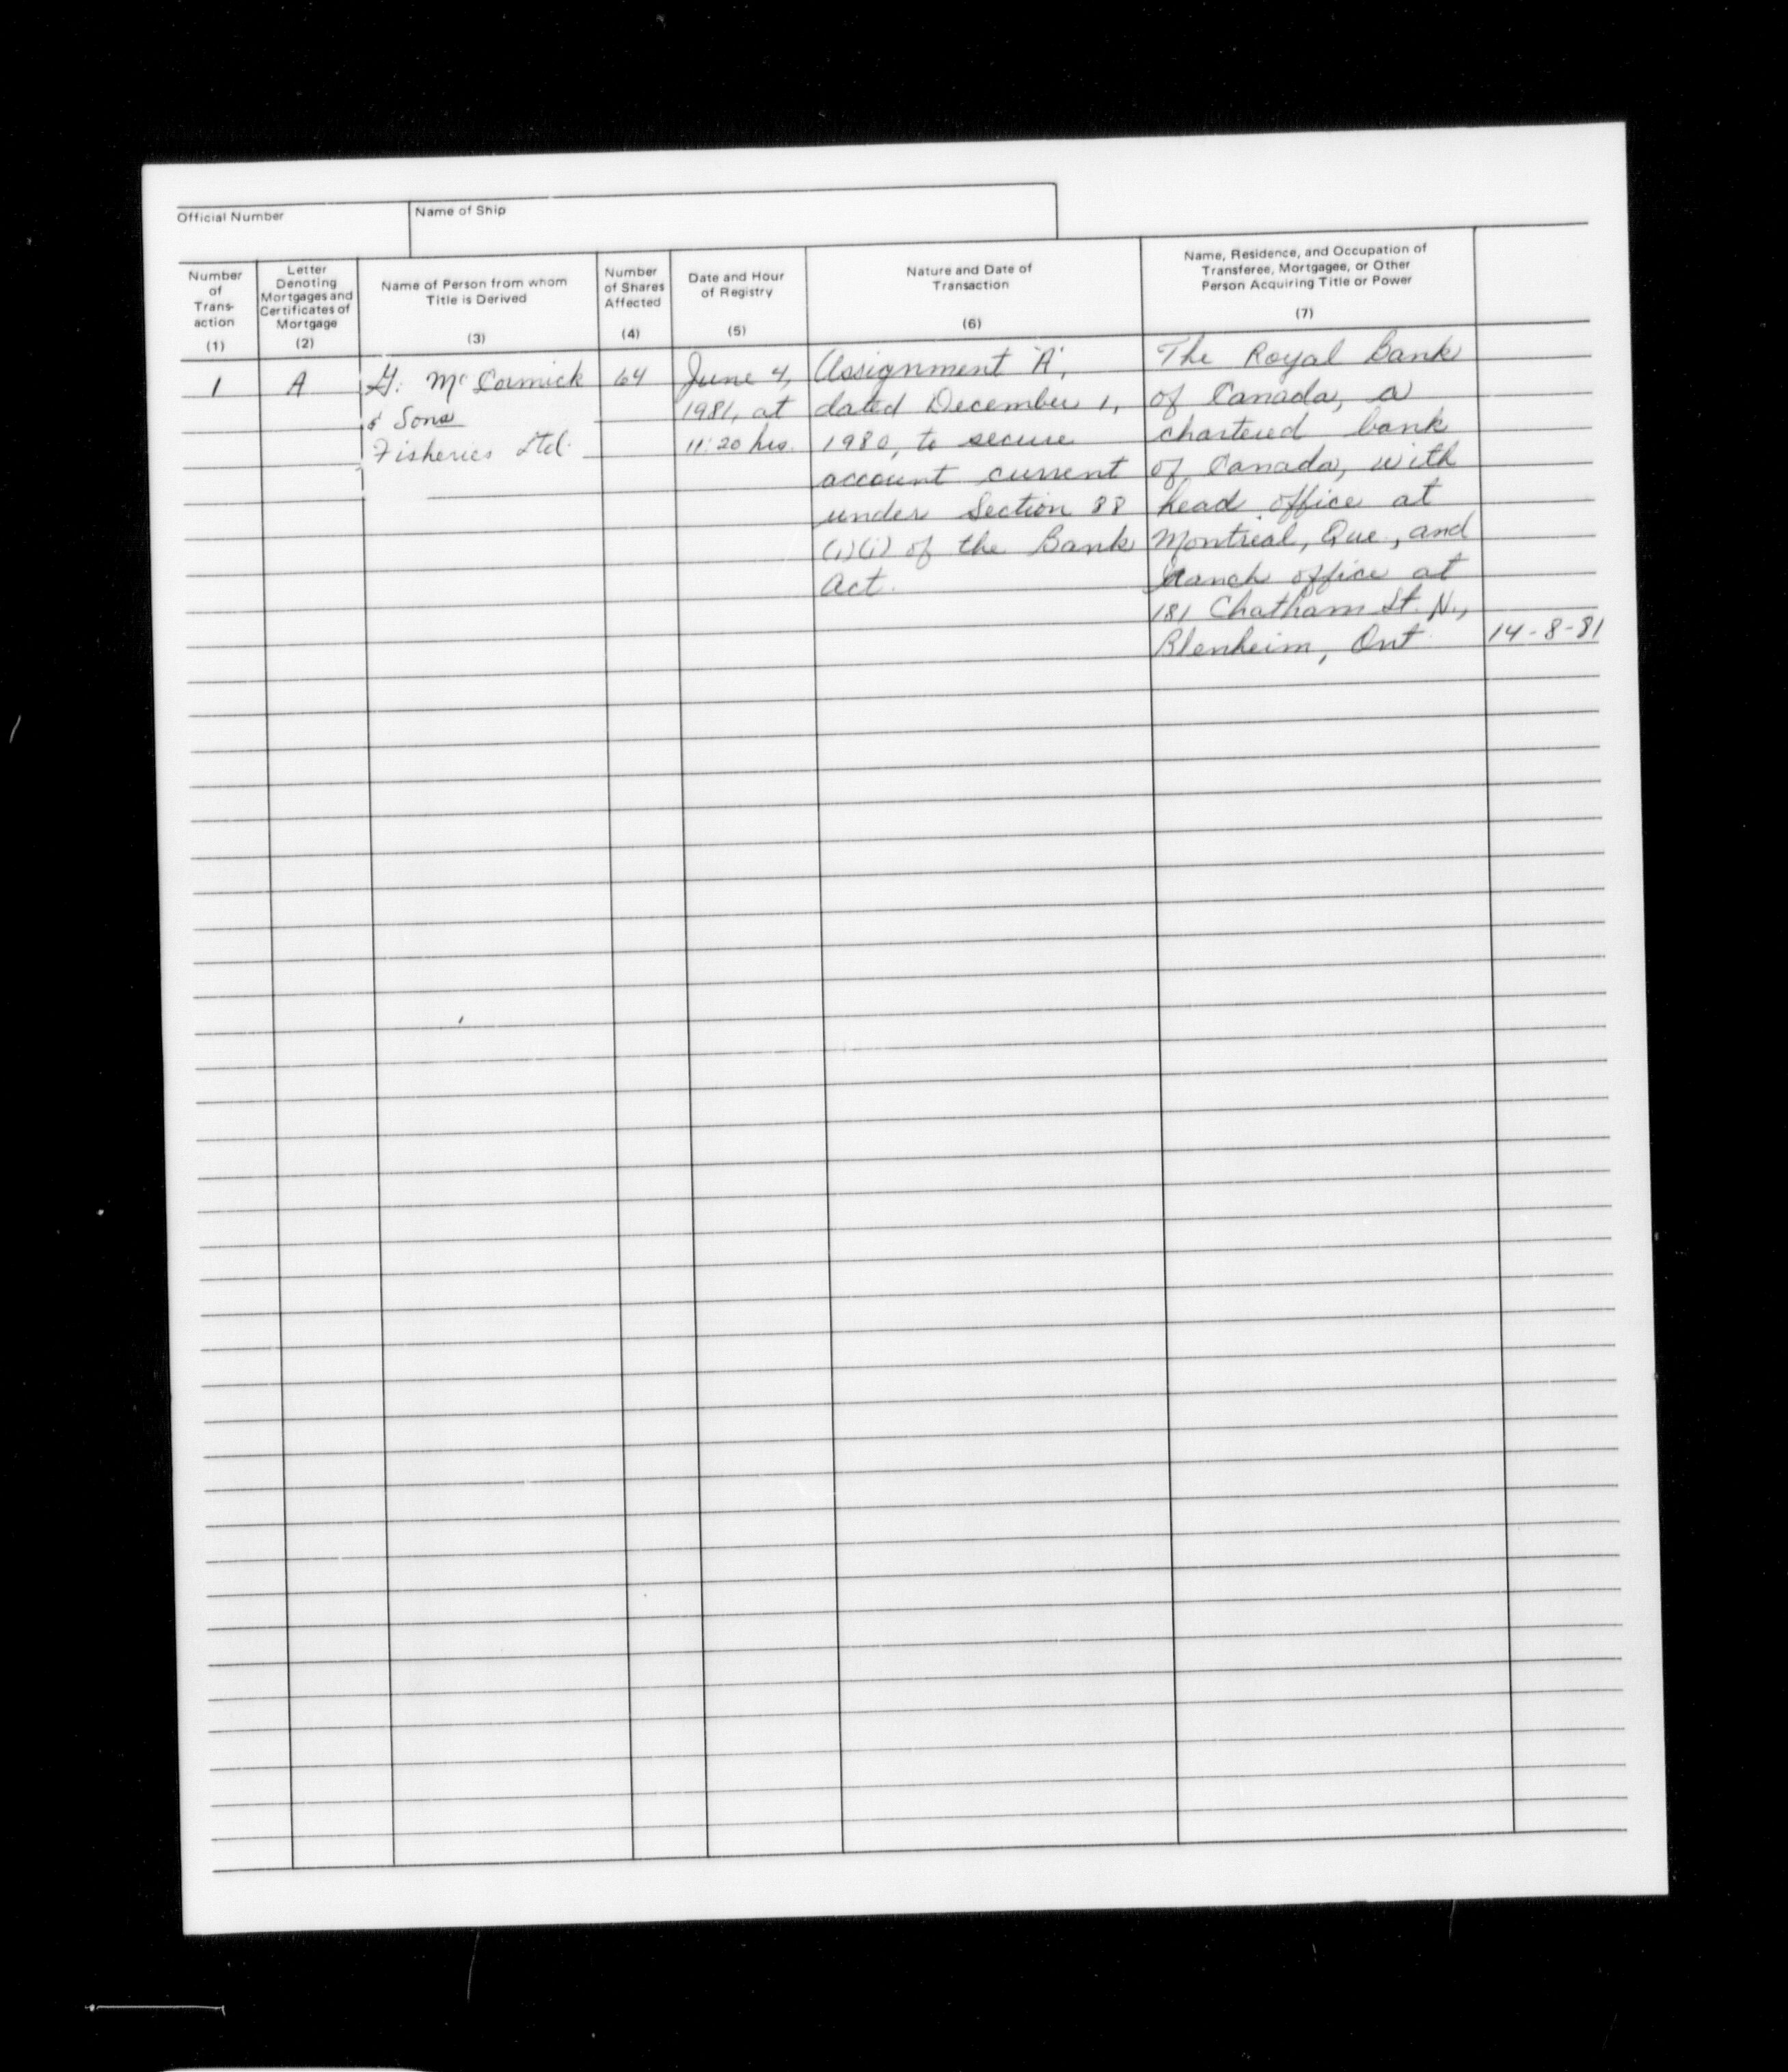 Official Number
Name of Ship
Number
of
Trans-
action
(1)
Letter
Denoting
Mortgages and
Certificates of
Mortgage
(2)
Name of Person from whom
Title is Derived
(3)
Number
of Shares
Affected
(4)
Date and Hour
of Registry
(5)
Nature and Date of
Transaction
(6)
Name, Residence, and Occupation of
Transferee, Mortgagee, or Other
Person Acquiring Title or Power
(7)
1
A
G. McCormick
& Sons
Fisheries Ltd.
64
June 4,
1981, at
11:20 hrs.
Assignment 'A',
dated December 1,
1980, to secure
account current
under Section 88
(1)(i) of the Bank
Act.
The Royal Bank
of Canada, a
chartered bank
of Canada, with
head office at
Montreal, Que., and
branch office at
181 Chatham St. N.,
Blenheim, Ont.
14-8-81